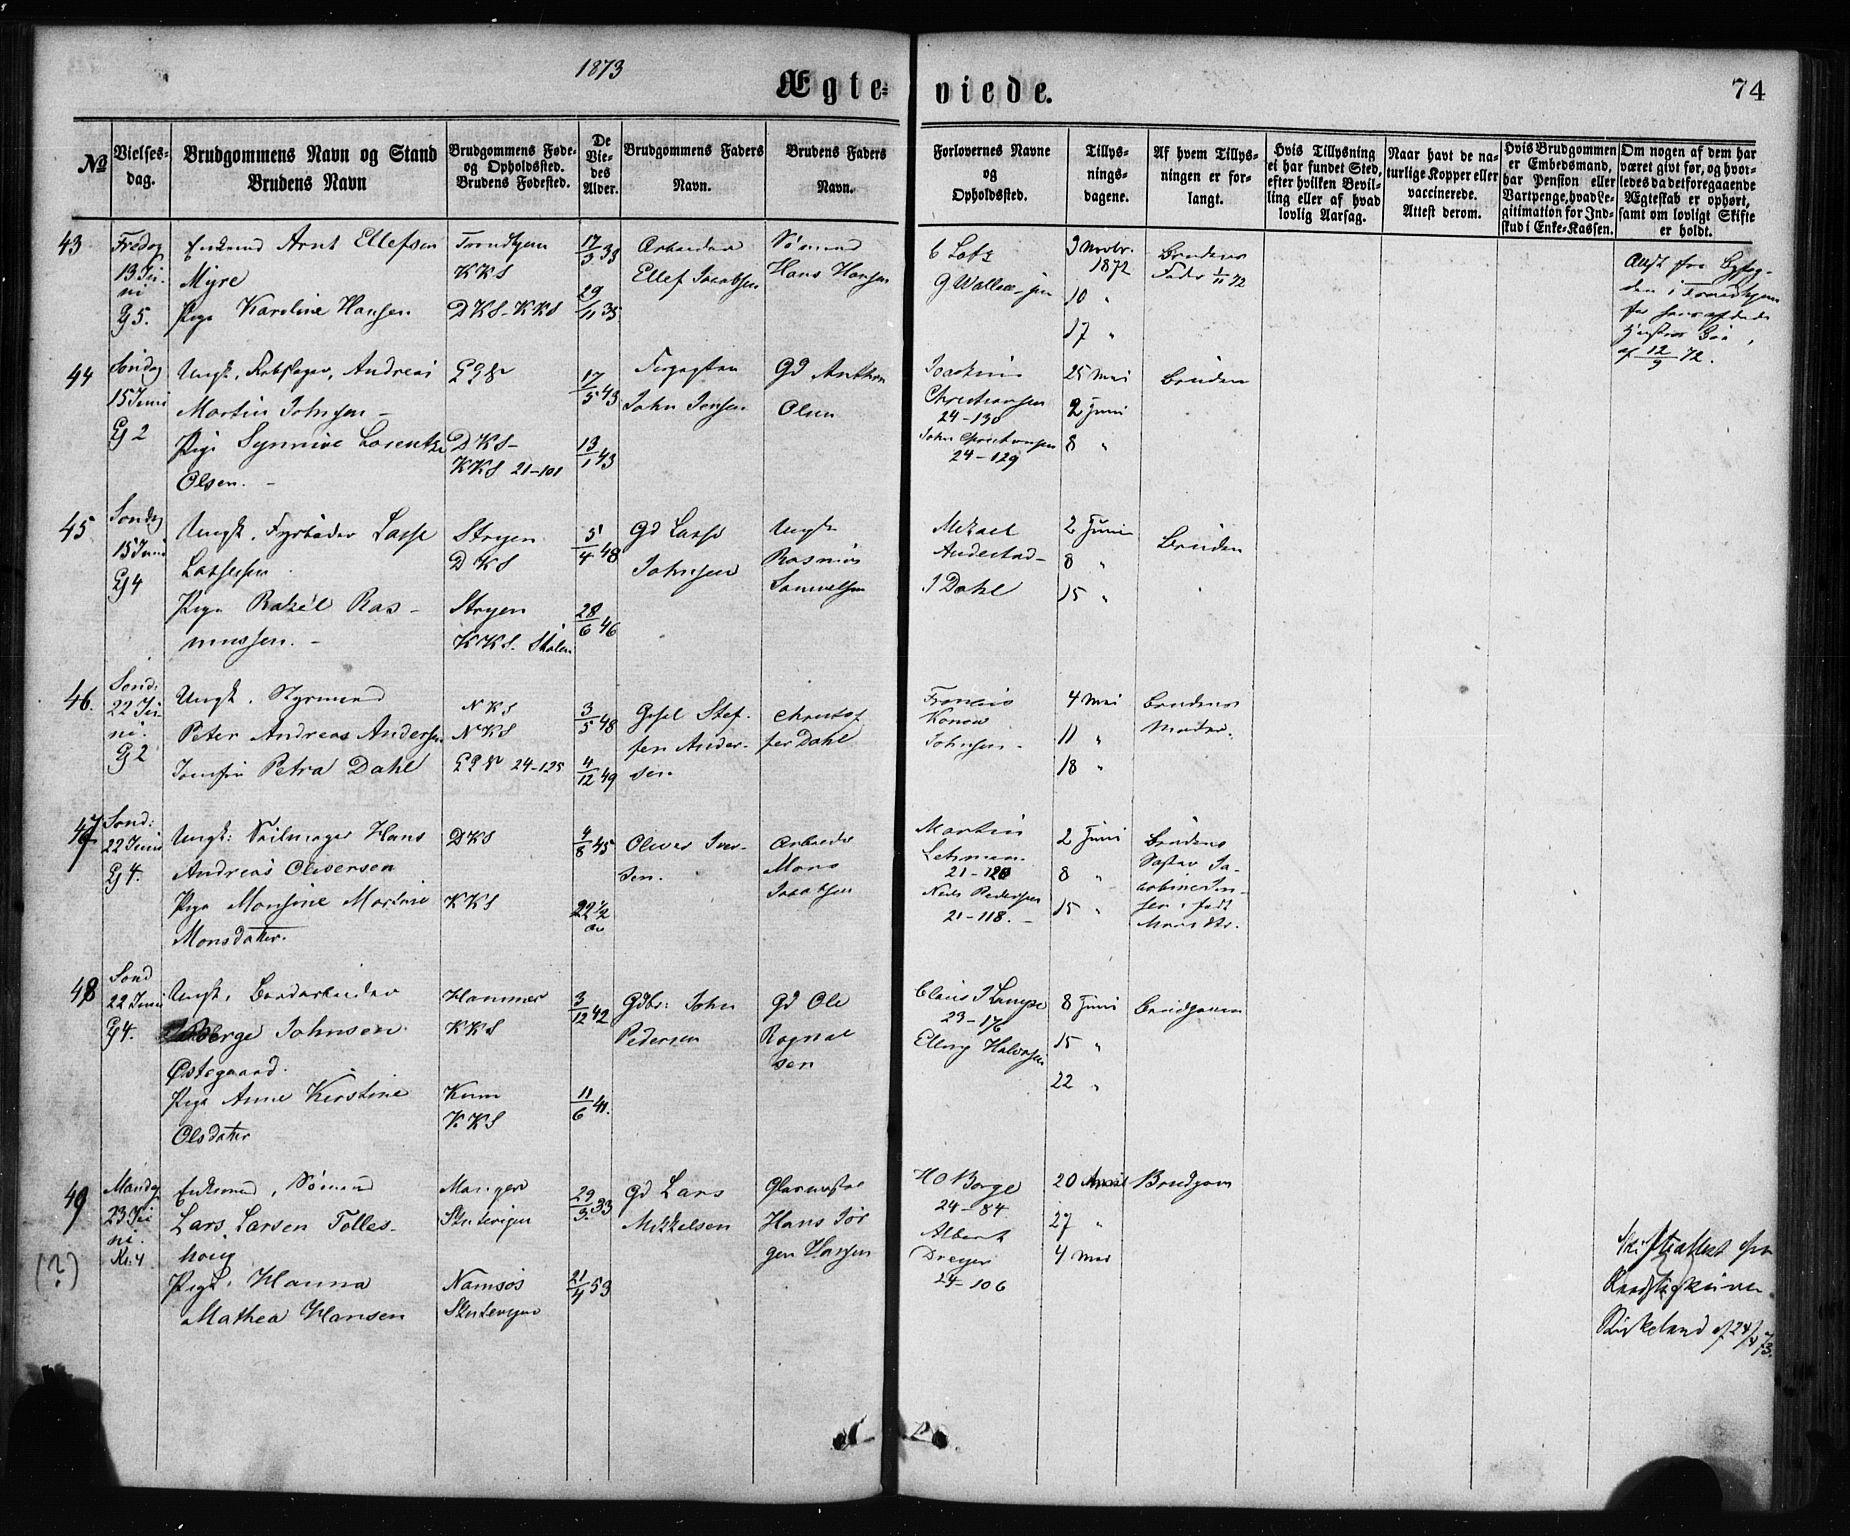 1873
Ægte- viede.
74
No
Vielses-
dag.
Brudgommens Navn og Stand
Brudens Navn
Brudgommens Føde-
og Opholdssted.
Brudens Fødested.
De
Vie-
des
Alder.
Brudgommens Faders
Navn.
Brudens Faders
Navn.
Forlovernes Navne
og
Opholdssted.
Tillys-
nings-
dagene.
Af hvem Tillys-
ningen er for-
langt.
Hvis Tillysning
ei har fundet Sted,
efter hvilken Bevil-
ling eller af hvad
lovlig Aarsag.
Naar havt de na-
turlige Kopper eller
vaccinerede.
Attest derom.
Hvis Brudgommen
er Embedsmand,
har Pension eller
Vartpenge, hvad Le-
gitimation for Ind-
skud i Enke-Kassen.
Om nogen af dem har
været givt før, og hvor-
ledes da det foregaaende
Ægteskab er ophørt,
samt om lovligt Skifte
er holdt.
43
Fredag
13 Ju-
ni
G 5.
Enkemd Arnt Ellefsen
Myre
Pige Karoline Hansen
Trondhjem
KKS
DKS - KKS
17/3 33
29/11 35
Arbeider
Ellef Jacobsen
Sømand
Hans Hansen
C Lotz
9 Novbr.
1872
10 "
17 "
Brudens
Fader 1/11 72
af 12/9 72.
44
Søndag
15 Juni
G 2
Ungk. Andreas
Martin Johnsen -
Pige Synnive Lorentze
Olsen. -
DKS -
KKS 21-101
17/5 43
13/1 43
John Jensen
Gd Anthon
Olsen
Joachim
Christiansen
24-130
John Christiansen
24-129
25 Mai
2 Juni
8 "
Bruden
45
Søndag
15 Juni
G 4
Ungk. Fyrbøder Lasse
Lassesen
Pige Rakel Ras-
mussen. -
Stryen
DKS
Stryen
KKS. Skolen
5/4 48
28/6 46
Gd Lasse
Johnsen
Ungk
Rasmus
Samuelsen
Mikael
Andestad -
J Dahl
2 Juni
8 "
15 "
Bruden
46.
Sønd:
22 Ju-
ni.
G 2
Ungk. Styrmand
Peter Andreas Andersen
Jomfru Petra Dahl
NKS
NKS
24-125
3/5 48
4/12 49
Stef-
fen Ander-
sen
Christof-
fer Dahl
Konow
Johnsen -
4 Mai
11 "
18 "
Brudens
Moder.
47
Sønd:
22 Juni
G 4.
Ungk: Seilmager Hans
Andreas Oliversen
Pige Monsine Martine
Monsdatter.
DKS
KKS
4/8 45
22 1/2
Oliver Iver-
sen.
Arbeider
Mons
Jacobsen
Martin
Lehman
Niels Pedersen
21-118. -
2 Juni
8 "
15 "
Brudens
Søster Ja-
cobine
født
Monsdtr.
48
Sønd
22 Juni
G 4.
Ungk. Bordarbeider
Johnsen
Østegaard.
Pige Anne Kirstine
Olsdatter
Hammer
KKS
KKS
3/12 42
11/6 41.
Gdbr: John
Pedersen
Gd Ole
Ragnal
sen
Claus J Lampe
23-176
Elling Halvorsen
8 Juni
15 "
22 "
Brudgomm
49
(?)
Mandag
23 Ju
ni.
Kl: 4
Enkemd, Sømand
Lars Larsen Tolles-
houg
Pige. Hanna
Mathea Hansen
Manger
Skutevigen
Namsos
Skutevigen
29/3 33
21/4 53
Gd Lars
Mikkelsen
Glarmester
Hans Jør
gen Hansen
H O Borge
24-84
Albert
Dreyer
24-106
20 April
27 "
4 Mai
Brudgom
Skifteattest fra
Birkeland af 24/4 73.